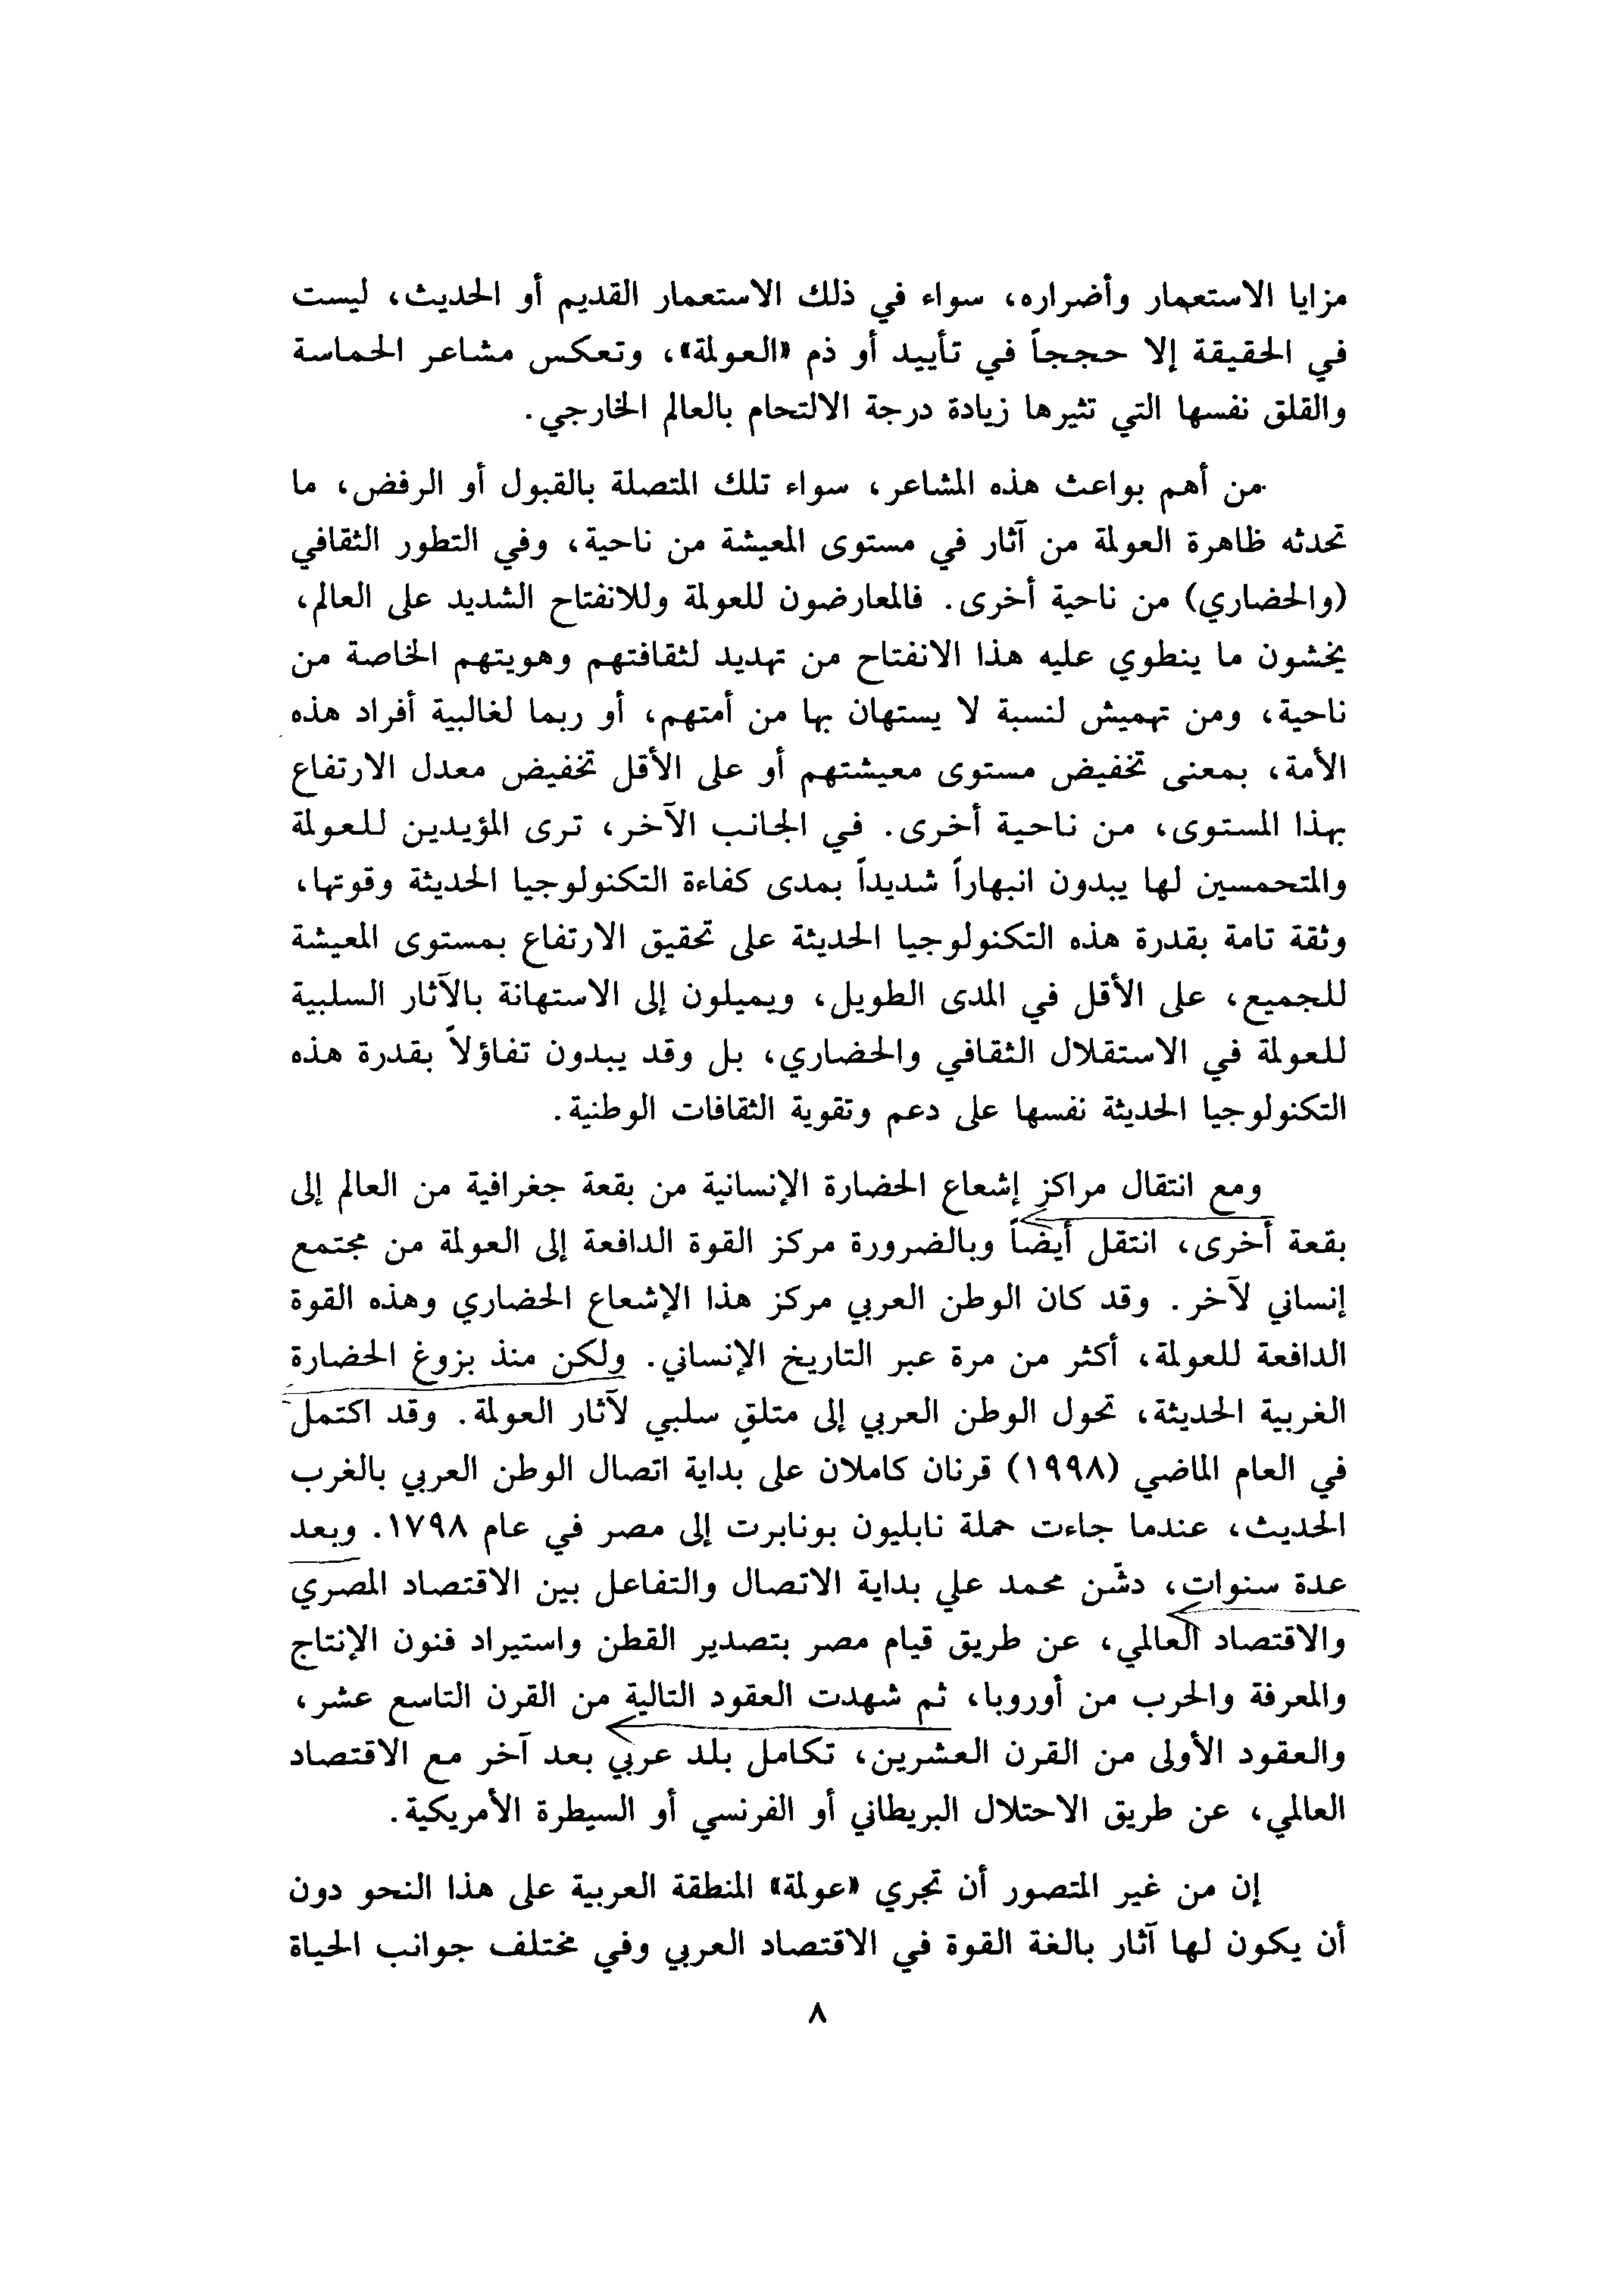 مزايا الاستعمار وأضراره، سواء في ذلك الاستعمار القديم أو الحديث، ليست
في الحقيقة إلا حججاً في تأييد أو ذم «العولمة»، وتعكس مشاعر الحماسة
والقلق نفسها التي تثيرها زيادة درجة الالتحام بالعالم الخارجي.
من أهم بواعث هذه المشاعر، سواء تلك المتصلة بالقبول أو الرفض، ما
تحدثه ظاهرة العولمة من آثار في مستوى المعيشة من ناحية، وفي التطور الثقافي
(والحضاري) من ناحية أخرى. فالمعارضون للعولمة وللانفتاح الشديد على العالم،
يخشون ما ينطوي عليه هذا الانفتاح من تهديد لثقافتهم وهويتهم الخاصة من
ناحية، ومن تهميش لنسبة لا يستهان بها من أمتهم، أو ربما لغالبية أفراد هذه
الأمة، بمعنى تخفيض مستوى معيشتهم أو على الأقل تخفيض معدل الارتفاع
بهذا المستوى، من ناحية أخرى. في الجانب الآخر، ترى المؤيدين للعولمة
والمتحمسين لها يبدون انبهاراً شديداً بمدى كفاءة التكنولوجيا الحديثة وقوتها،
وثقة تامة بقدرة هذه التكنولوجيا الحديثة على تحقيق الارتفاع بمستوى المعيشة
للجميع، على الأقل في المدى الطويل، ويميلون إلى الاستهانة بالآثار السلبية
للعولمة في الاستقلال الثقافي والحضاري، بل وقد يبدون تفاؤلاً بقدرة هذه
التكنولوجيا الحديثة نفسها على دعم وتقوية الثقافات الوطنية.
ومع انتقال مراكز إشعاع الحضارة الإنسانية من بقعة جغرافية من العالم إلى
بقعة أخرى، انتقل أيضاً وبالضرورة مركز القوة الدافعة إلى العولمة من مجتمع
إنساني لآخر. وقد كان الوطن العربي مركز هذا الإشعاع الحضاري وهذه القوة
الدافعة للعولمة، أكثر من مرة عبر التاريخ الإنساني. ولكن منذ بزوغ الحضارة
الغربية الحديثة، تحول الوطن العربي إلى متلقٍ سلبي لآثار العولمة. وقد اكتمل
في العام الماضي (١٩٩٨) قرنان كاملان على بداية اتصال الوطن العربي بالغرب
الحديث، عندما جاءت حملة نابليون بونابرت إلى مصر في عام ١٧٩٨. وبعد
عدة سنوات، دشّن محمد علي بداية الاتصال والتفاعل بين الاقتصاد المصري
والاقتصاد العالمي، عن طريق قيام مصر بتصدير القطن واستيراد فنون الإنتاج
والمعرفة والحرب من أوروبا، ثم شهدت العقود التالية من القرن التاسع عشر،
والعقود الأولى من القرن العشرين، تكامل بلد عربي بعد آخر مع الاقتصاد
العالمي، عن طريق الاحتلال البريطاني أو الفرنسي أو السيطرة الأمريكية.
إن من غير المتصور أن تجري «عولمة» المنطقة العربية على هذا النحو دون
أن يكون لها آثار بالغة القوة في الاقتصاد العربي وفي مختلف جوانب الحياة
٨